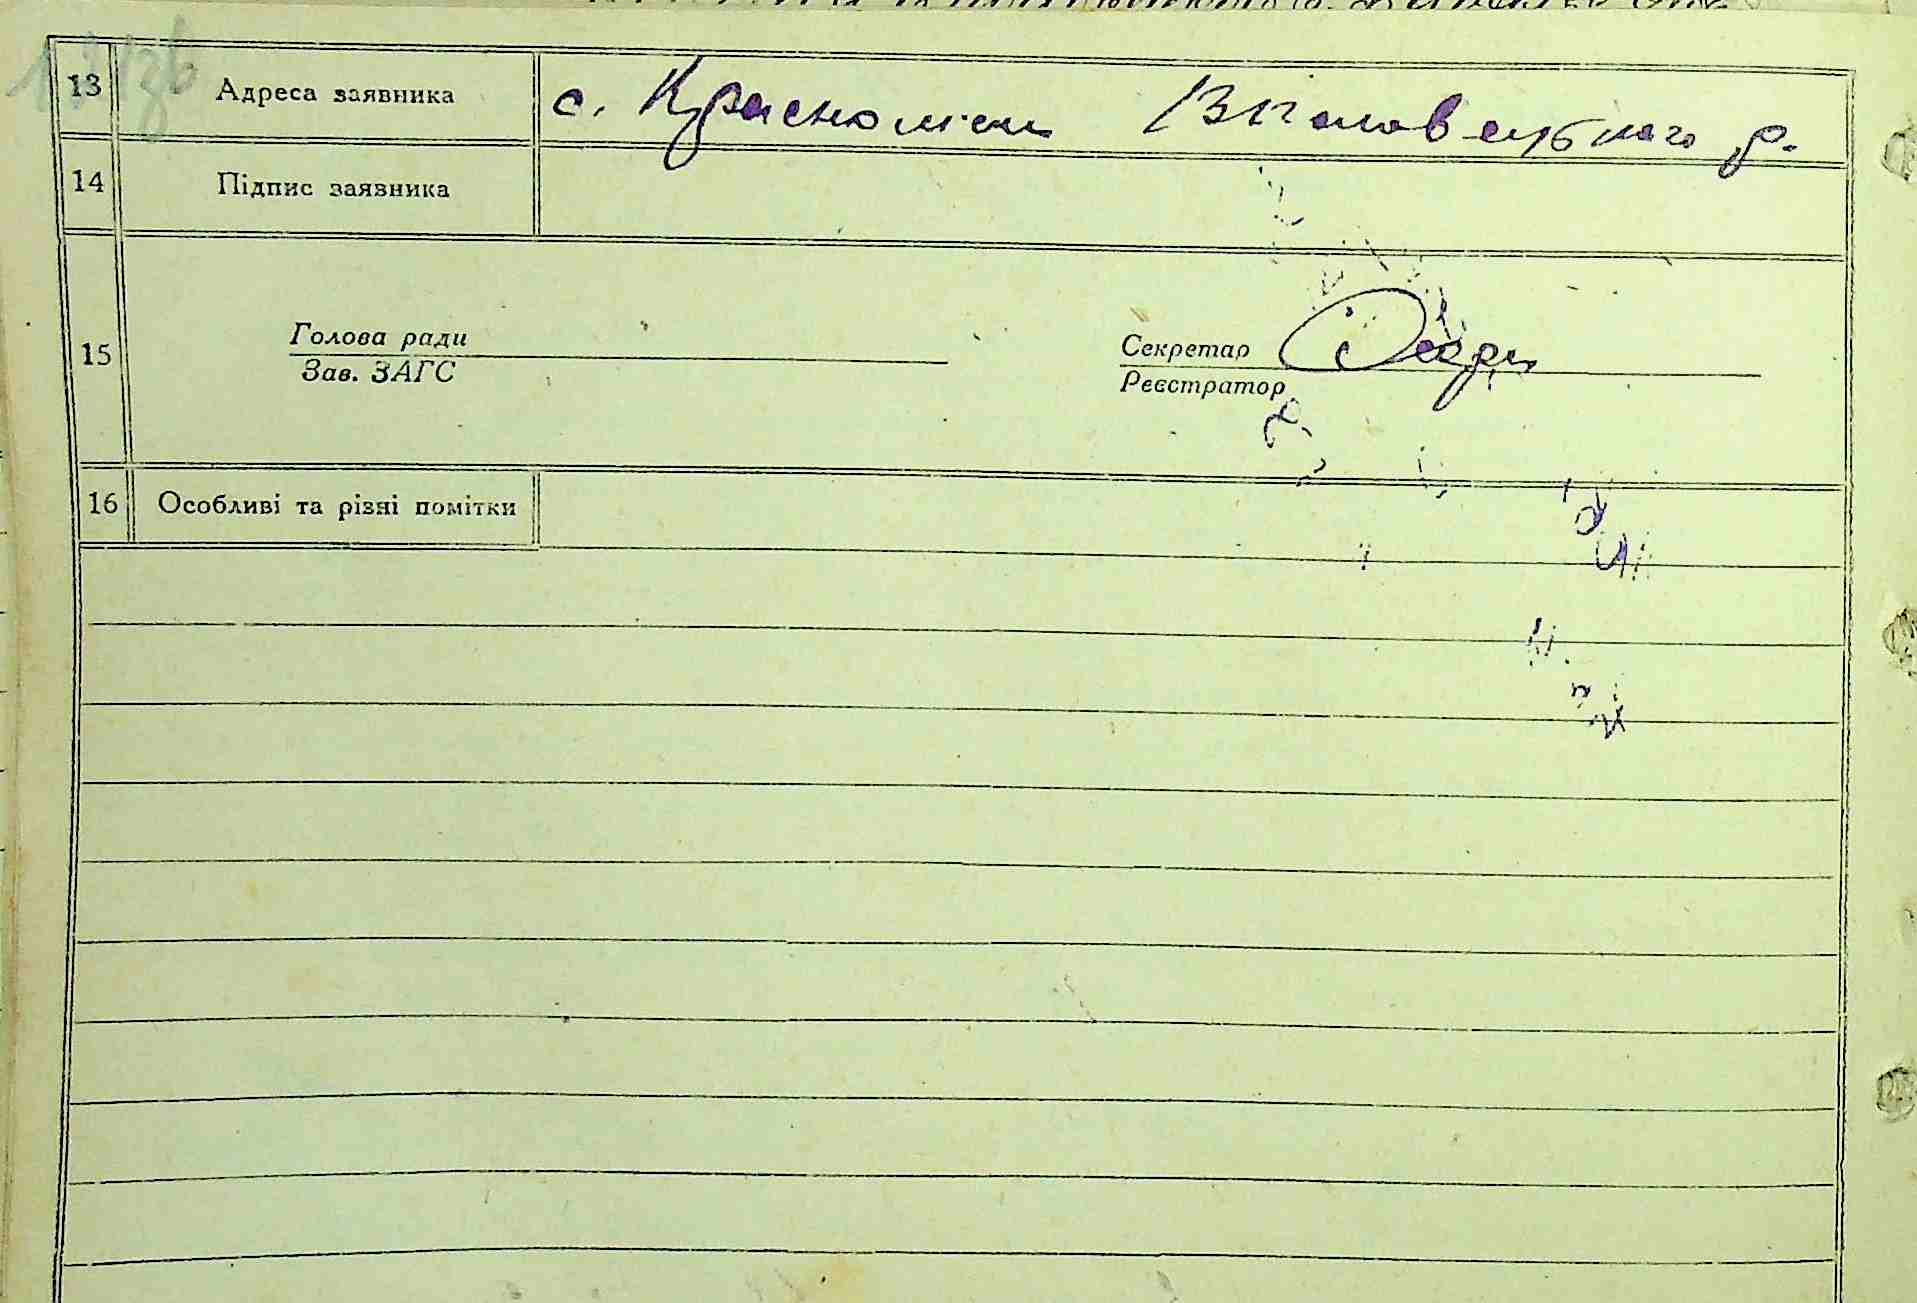 13 Адреса заявника с. Красносілка р.
14 Підпис заявника
15 Голова ради Секретар
Зав. ЗАГС Реєстратор
16 Особливі та різні помітки